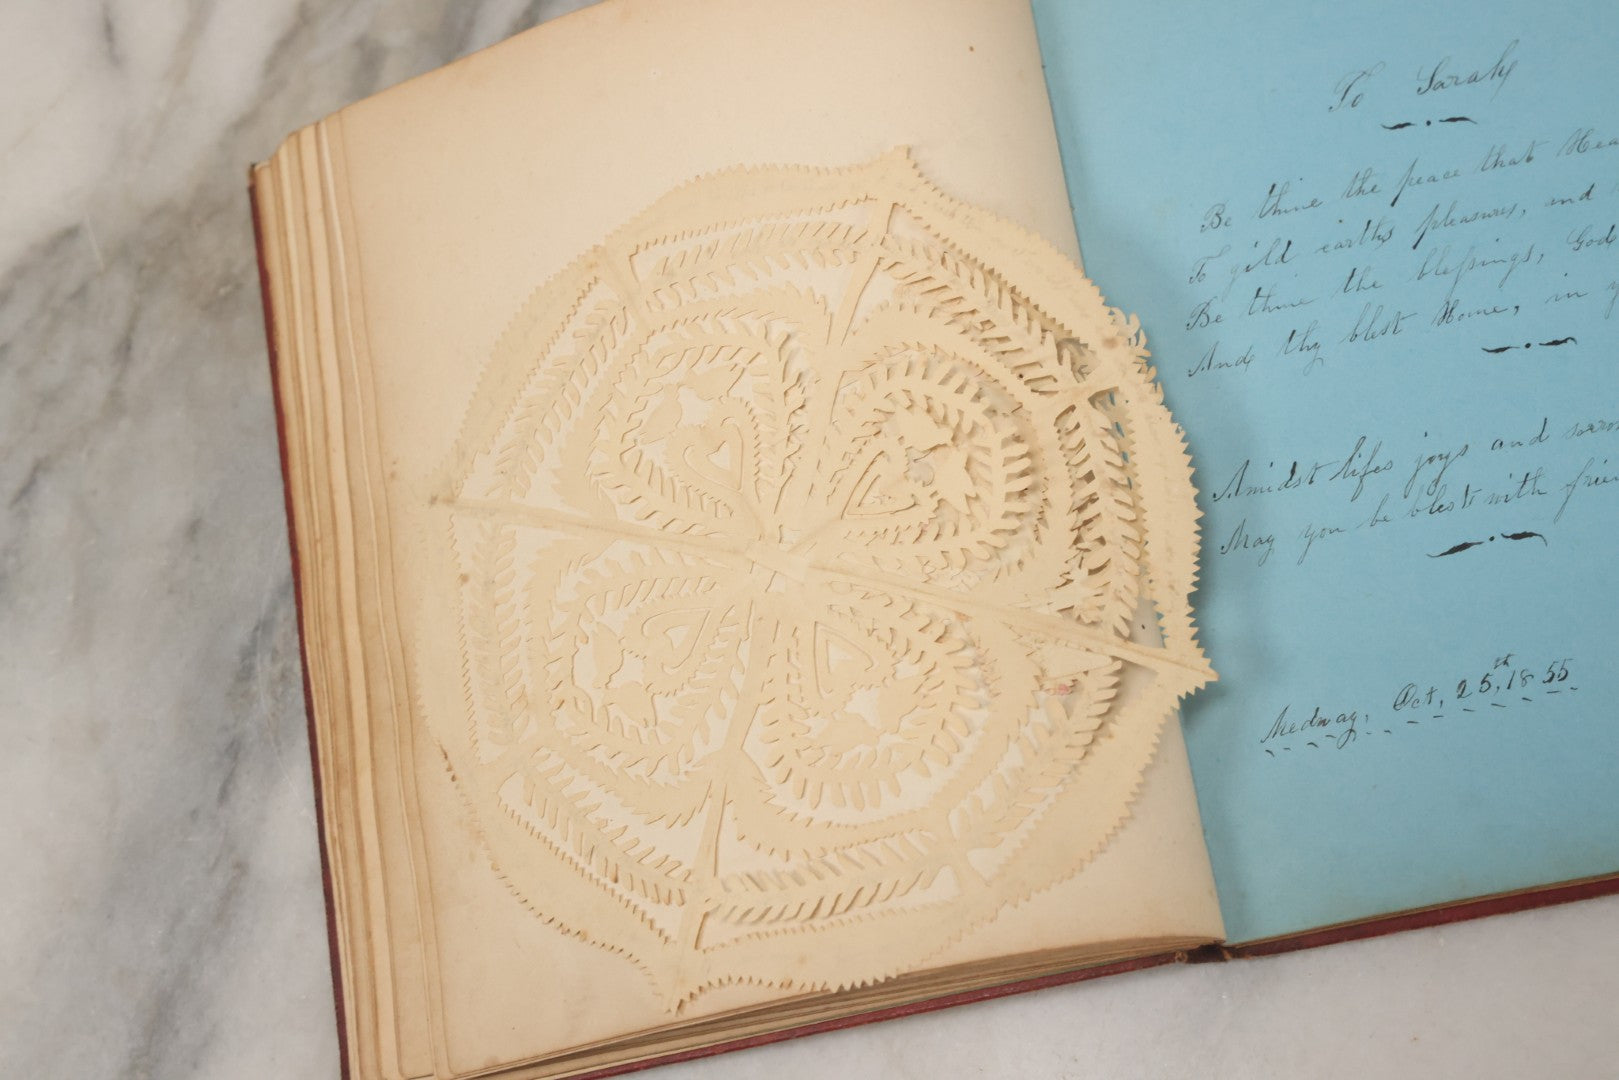 To Sarah
Be thine the peace that Hea
To gild earths pleasures, and
Be thine the blessings, God
And thy blest Home, in
Amidst lifes joys and sorro
May you be blest with frien
Medway, Oct, 25,th 1855